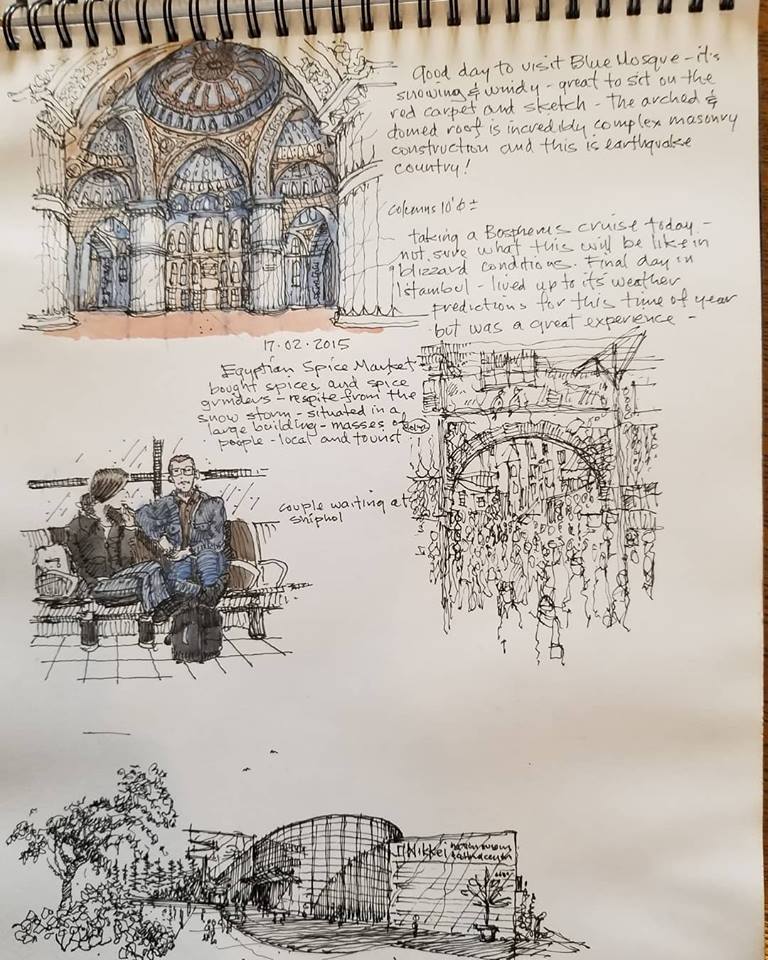 Good day to visit Blue Mosque - it's
snowing & windy - great to sit on the
red carpet and sketch - the arched &
domed roof is incredibly complex masonry
construction and this is earthquake
country!
columns 10'Φ ±
taking a Bospherus cruise today -
not sure what this will be like in
blizzard conditions. Final day in
Istanbul - lived up to its weather
predictions for this time of year
but was a great experience -
17.02.2015
Egyptian Spice Market
bought spices and spice
grinders - respite from the
snow storm - situated in a
large building - masses of
people - local and tourist
couple waiting at
Shiphol
Nikkei